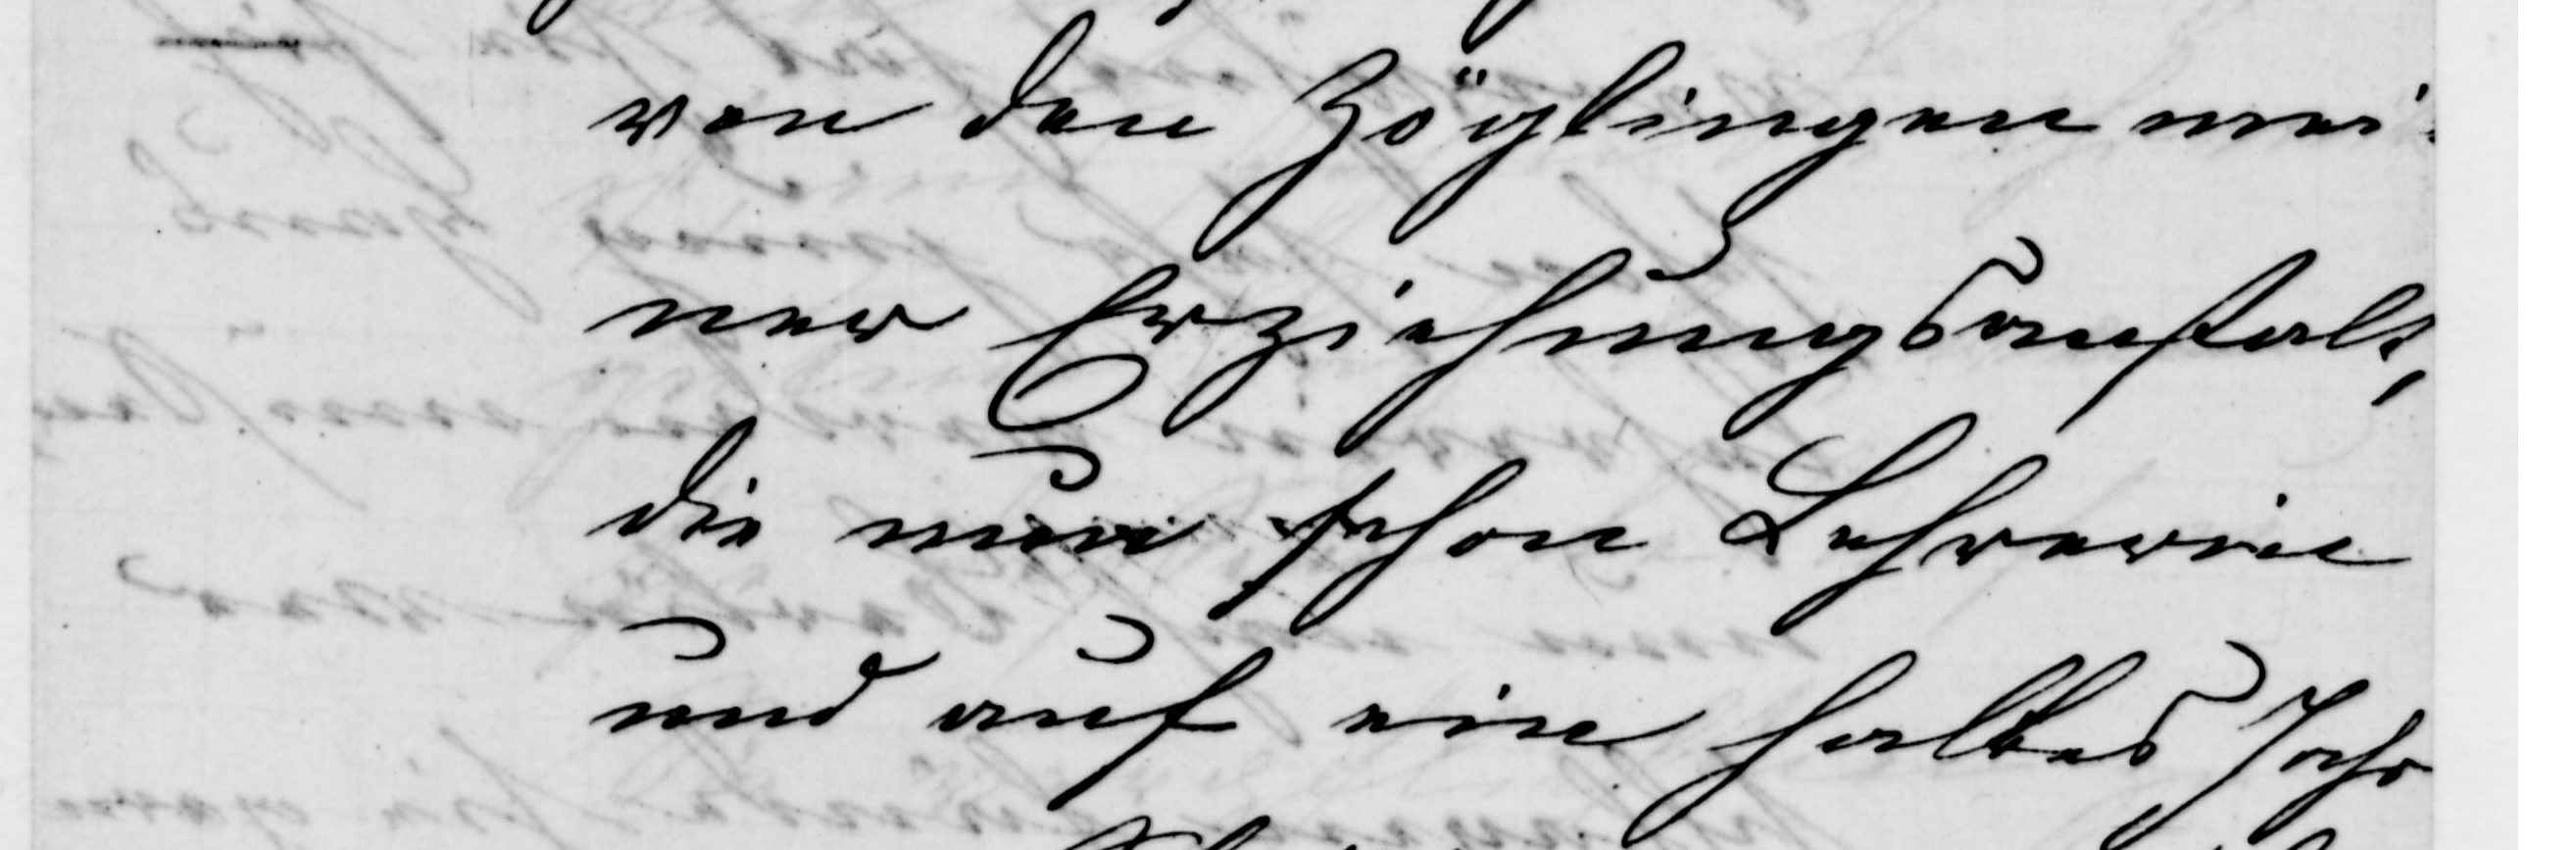 von den Zöglingen mei-
ner Erziehungsanstalt,
die nun schon Lehrerin
und auf ein halbes Jahr